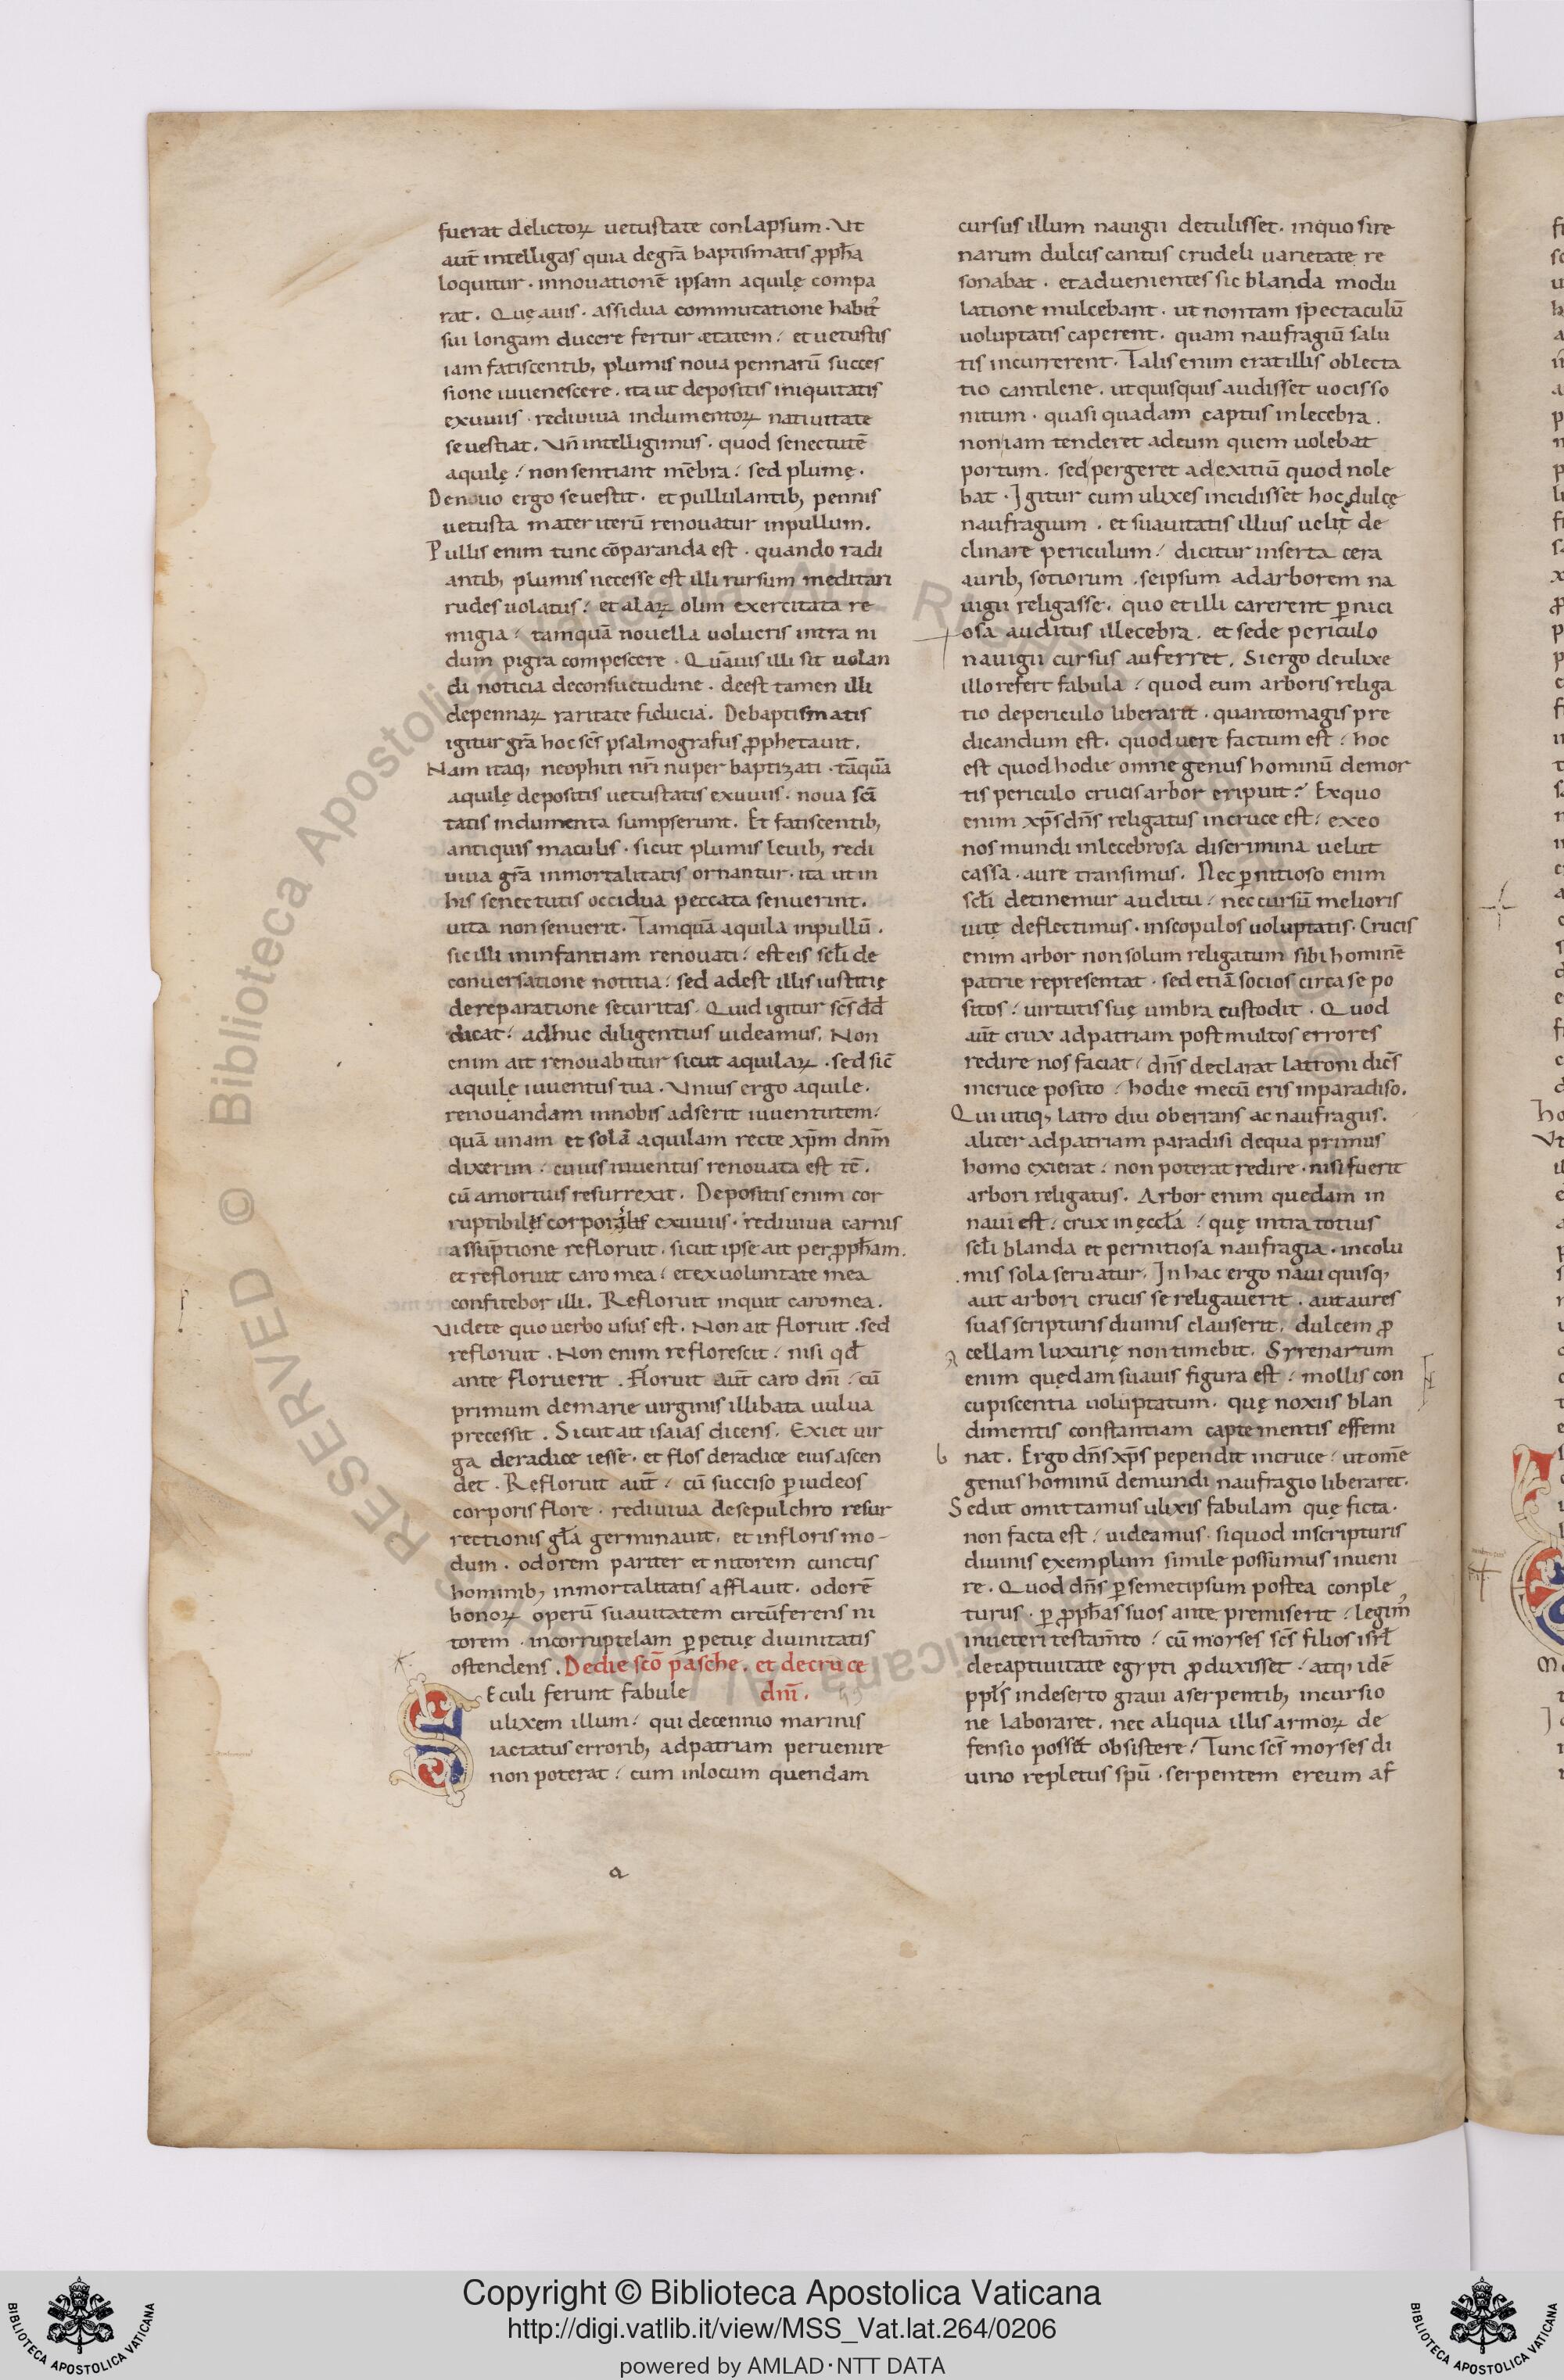 fuerat delictoꝝ uetustate conlapsum. Ut
aut̄ intelligas quia de gr̄a baptismatis ꝓph̄a
loquitur. innouationē ipsam aquilę compa
rat. Quę auis. assidua commutatione habit᷒
sui longam ducere fertur ætatem. et uetustis
iam fatiscentib; plumis noua pennarū succes
sione iuuenescere. ita ut depositis iniquitatis
exuuiis. rediuiua indumentoꝝ natiuitate
se uestiat. Un̄ intelligimus. quod senectutē
aquilę. non sentiant mēbra. sed plumę.
Denouo ergo se uestit. et pullulantib; pennis
uetusta mater iterū renouatur in pullum.
Pullis enim tunc cōparanda est. quando radi
antib; plumis necesse est illi rursum meditari
rudes uolatus. et alaꝝ olim exercitata re
migia. tamquā nouella uolucris intra ni
dum pigra compescere. Quāuis illi sit uolan
di noticia de consuetudine. deest tamen illi
de pennaꝝ raritate fiducia. De baptismatis
igitur gr̄a hoc sc̄s psalmografus ꝓphetauit.
Nam itaq; neophiti nr̄i nuper baptizati. tāquā
aquilę depositis uetustatis exuuiis. noua scī
tatis indumenta sumpserunt. Et fatiscentib;
antiquis maculis. sicut plumis leuib; redi
uiua gr̄a inmortalitatis ornantur. ita ut in
his senectutis occidua peccata senuerint.
uita non senuerit. Tamquā aquila in pullū.
sic illi in infantiam renouati. est eis scl̄i de
conuersatione notitia. sed adest illis iustitię
de reparatione securitas. Quid igitur sc̄s dd̄
dicat. adhuc diligentius uideamus. Non
enim ait renouabitur sicut aquilaꝝ. sed sic̄
aquilę iuuentus tua. Unius ergo aquile.
renouandam in nobis adserit iuuentutem.
quā unam et solā aquilam recte xp̄m dnm̄
dixerim. cuius iuuentus renouata est tc̄.
cū a mortuis resurrexit. Depositis enim cor
ruptibilęs corporalis exuuiis. rediuiua carnis
assūptione refloruit. sicut ipse ait per ꝓph̄am.
et refloruit caro mea. et ex uoluntate mea
confitebor illi. Refloruit inquit caro mea.
Videte quo uerbo usus est. Non ait floruit. sed
refloruit. Non enim reflorescit. nisi qd̄
ante floruerit. Floruit aut̄ caro dnī. cū
primum de marie uirginis illibata uulua
precessit. Sicut ait isaias dicens. Exiet uir
ga de radice iesse. et flos de radice eius ascen
det. Refloruit aut̄. cū succiso ꝑ iudeos
corporis flore. rediuiua de sepulchro resur
rectionis gl̄a germinauit. et in floris mo-
dum. odorem pariter et nitorem cunctis
hominib; inmortalitatis afflauit. odorē
bonoꝝ operū suauitatem circūferens ni
torem. incorruptelam ꝑpetuę diuinitatis
ostendens. De die scō pasche. et de cruce
Seculi ferunt fabule dnī.
ulixem illum. qui decennio marinis
iactatus errorib; ad patriam peruenire
non poterat. cum in locum quendam
a
cursus illum nauigii detulisset. in quo sire
narum dulcis cantus crudeli uarietate re
sonabat. et aduenientes sic blanda modu
latione mulcebant. ut non tam spectaculū
uoluptatis caperent. quam naufragiū salu
tis incurrerent. Talis enim erat illis oblecta
tio cantilene. ut quisquis audisset uocis so
nitum. quasi quadam captus inlecebra.
non iam tenderet ad eum quem uolebat
portum. sed pergeret ad exitiū quod nole
bat. Igitur cum ulixes incidisset hoc dulcę
naufragium. et suauitatis illius uelit de
clinare periculum. dicitur inserta cera
aurib; sotiorum. se ipsum ad arborem na
uigii religasse. quo et illi carerent ꝑnici
osa auditus illecebra. et se de periculo
nauigii cursus auferret. Si ergo de ulixe
illo refert fabula. quod eum arboris religa
tio de periculo liberarit. quanto magis pre
dicandum est. quod uere factum est. hoc
est quod hodie omne genus hominū de mor
tis periculo crucis arbor eripuit. Ex quo
enim xp̄s dn̄s religatus in cruce est. ex eo
nos mundi inlecebrosa discrimina uelut
cassa. aure transimus. Nec ꝑnitioso enim
scl̄i detinemur auditu. nec cursū melioris
uitę deflectimus. in scopulos uoluptatis. Crucis
enim arbor non solum religatum sibi hominē
patrie representat. sed etiā socios circa se po
sitos. uirtutis suę umbra custodit. Quod
aut̄ crux ad patriam post multos errores
redire nos faciat. dn̄s declarat latroni dicēs
in cruce posito. hodie mecū eris in paradiso.
Qui utiq; latro diu oberrans ac naufragus.
aliter ad patriam paradisi de qua primus
homo exierat. non poterat redire. nisi fuerit
arbori religatus. Arbor enim quedam in
naui est. crux in ęccl̄a. quę intra totius
scl̄i blanda et pernitiosa naufragia. incolu
mis sola seruatur. In hac ergo naui quisq;
aut arbori crucis se religauerit. aut aures
suas scripturis diuinis clauserit. dulcem ꝓ
cellam luxurię non timebit. Syrenarum
enim quędam suauis figura est. mollis con
cupiscentia uoluptatum. quę noxiis blan
dimentis constantiam capte mentis effemi
nat. Ergo dn̄s xp̄s pependit in cruce. ut om̄e
genus hominū de mundi naufragio liberaret.
Sed ut omittamus ulixis fabulam quę ficta.
non facta est. uideamus. si quod in scripturis
diuinis exemplum simile possumus inueni
re. Quod dn̄s ꝑ semetipsum postea conple
turus. ꝑ ꝓph̄as suos ante premiserit. legim᷒
in ueteri testam̄to. cū moyses sc̄s filios isrl̄
de captiuitate egypti ꝓduxisset. atq; idē
ppl̄s in deserto graui a serpentib; incursio
ne laboraret. nec aliqua illis armoꝝ de
fensio posset obsistere. Tunc sc̄s moyses di
uino repletus spū. serpentem ereum af
Copyright © Biblioteca Apostolica Vaticana
http://digi.vatlib.it/view/MSS_Vat.lat.264/0206
powered by AMLAD·NTT DATA